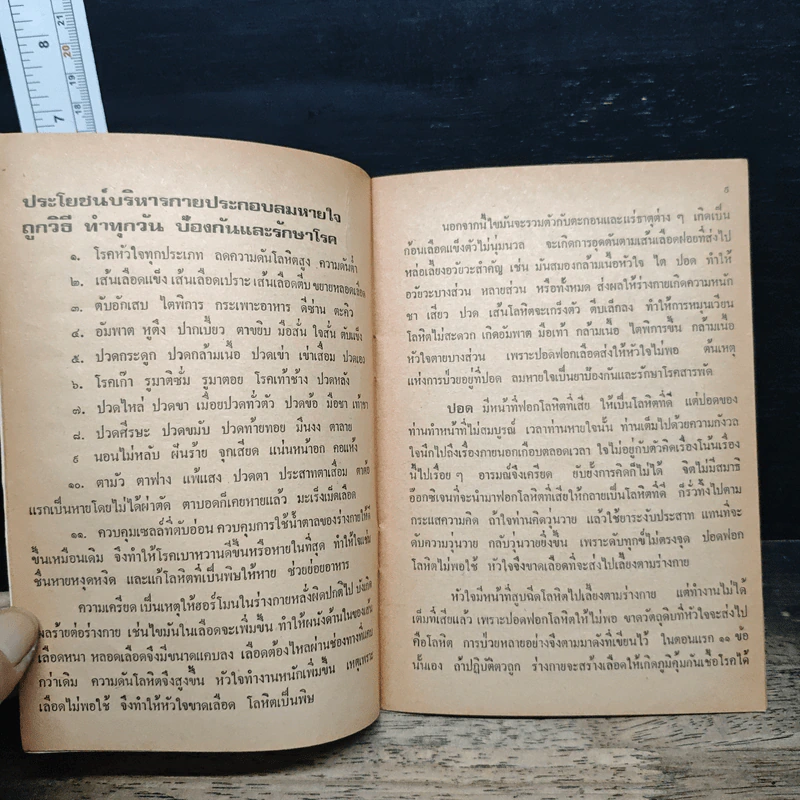 8
7
21
20
19
18
17
ประโยชน์บริหารกายประกอบลมหายใจ
ถูกวิธี ทำทุกวัน ป้องกันและรักษาโรค
๑. โรคหัวใจทุกประเภท ลดความดันโลหิตสูง ความดันต่ำ
๒. เส้นเลือดแข็ง เส้นเลือดเปราะ เส้นเลือดตีบ ขยายหลอดเลือด
๓. ตับอักเสบ ไตพิการ กระเพาะอาหาร ดีซ่าน ตะคิว
๔. อัมพาต หูตึง ปากเบี้ยว ตาขยิบ มือสั่น ใจสั่น ตับแข็ง
๕. ปวดกระดูก ปวดกล้ามเนื้อ ปวดเข่า เข่าเสื่อม ปวดเอว
๖. โรคเก๊า รูมาติซั่ม รูมาตอย โรคเท้าช้าง ปวดหลัง
๗. ปวดไหล่ ปวดขา เมื่อยปวดทั่วตัว ปวดข้อ มือชา เท้าชา
๘. ปวดศีรษะ ปวดขมับ ปวดท้ายทอย มึนงง ตาลาย
๙ นอนไม่หลับ ฝันร้าย จุกเสียด แน่นหน้าอก คอแห้ง
๑๐. ตามัว ตาฟาง แพ้แสง ปวดตา ประสาทตาเสื่อม
แรกเป็นหายโดยไม่ได้ผ่าตัด ตาบอดก็เคยหายแล้ว มะเร็งเม็ดเลือด
๑๑. ควบคุมเซลล์ที่ตับอ่อน ควบคุมการใช้น้ำตาลของร่างกายให้ดี
ขึ้นเหมือนเดิม จึงทำให้โรคเบาหวานดีขึ้นหรือหายในที่สุด ทำให้ใจเย็น
ชื่นหายหงุดหงิด และแก้โลหิตที่เป็นพิษให้หาย ช่วยย่อยอาหาร
ความเครียด เป็นเหตุให้ฮอร์โมนในร่างกายหลั่งผิดปกติไป บังเกิด
ผลร้ายต่อร่างกาย เช่นไขมันในเลือดจะเพิ่มขึ้น ทำให้ผนังด้านในของเส้น
เลือดหนา หลอดเลือดจึงมีขนาดแคบลง เลือดต้องไหลผ่านช่องทางที่แคบ
กว่าเดิม ความดันโลหิตจึงสูงขึ้น หัวใจทำงานหนักเพิ่มขึ้น เหตุเพราะ
เลือดไม่พอใช้ จึงทำให้หัวใจขาดเลือด โลหิตเป็นพิษ
นอกจากนี้ไขมันจะรวมตัวกับตะกอนและแร่ธาตุต่าง ๆ เกิดเป็น
ก้อนเลือดแข็งตัวไม่นุ่มนวล จะเกิดการอุดตันตามเส้นเลือดฝอยที่ส่งไป
หล่อเลี้ยงอวัยวะสำคัญ เช่น มันสมองกล้ามเนื้อหัวใจ ไต ปอด ทำให้
อวัยวะบางส่วน หลายส่วน หรือทั้งหมด ส่งผลให้ร่างกายเกิดความหนัก
ชา เสียว ปวด เส้นโลหิตจะเกร็งตัว ตีบเล็กลง ทำให้การหมุนเวียน
โลหิตไม่สะดวก เกิดอัมพาต มือเท้า กล้ามเนื้อ ไตพิการขึ้น กล้ามเนื้อ
หัวใจตายบางส่วน เพราะปอดฟอกเลือดส่งให้หัวใจไม่พอ ต้นเหตุ
แห่งการป่วยอยู่ที่ปอด ลมหายใจเป็นยาป้องกันและรักษาโรคสารพัด
ปอด มีหน้าที่ฟอกโลหิตที่เสีย ให้เป็นโลหิตที่ดี แต่ปอดของ
ท่านทำหน้าที่ไม่สมบูรณ์ เวลาท่านหายใจนั้น ท่านเต็มไปด้วยความกังวล
ใจนึกไปถึงเรื่องภายนอกเกือบตลอดเวลา ใจไม่อยู่กับตัวคิดเรื่องโน้นเรื่อง
นี้ไปเรื่อย ๆ อารมณ์จึงเครียด ยับยั้งการคิดก็ไม่ได้ จิตไม่มีสมาธิ
อ๊อกซิเจนที่จะนำมาฟอกโลหิตที่เสียให้กลายเป็นโลหิตที่ดี ก็รั่วทิ้งไปตาม
กระแสความคิด ถ้าใจท่านคิดวุ่นวาย แล้วใช้ยาระงับประสาท แทนที่จะ
ดับความวุ่นวาย กลับวุ่นวายยิ่งขึ้น เพราะดับทุกข์ไม่ตรงจุด ปอดฟอก
โลหิตไม่พอใช้ หัวใจจึงขาดเลือดที่จะส่งไปเลี้ยงตามร่างกาย
หัวใจมีหน้าที่สูบฉีดโลหิตไปเลี้ยงตามร่างกาย แต่ทำงานไม่ได้
เต็มที่เสียแล้ว เพราะปอดฟอกโลหิตให้ไม่พอ ขาดวัตถุดิบที่หัวใจจะส่งไป
คือโลหิต การป่วยหลายอย่างจึงตามมาดังที่เขียนไว้ ในตอนแรก ๑๑ ข้อ
นั้นเอง ถ้าปฏิบัติตัวถูก ร่างกายจะสร้างเลือดให้เกิดภูมิคุ้มกันเชื้อโรคได้